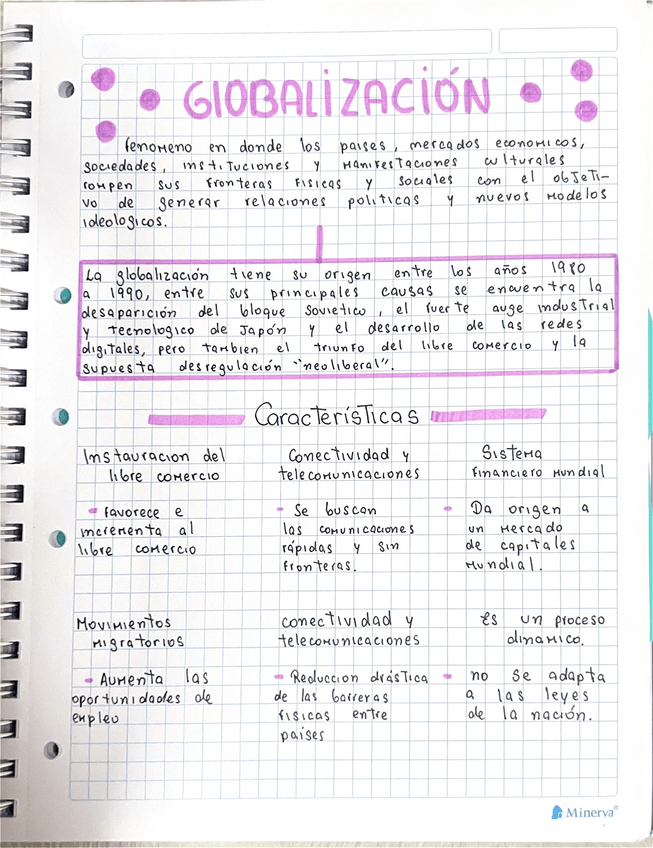 GlOBALiZACIÓN
fenomeno en donde los paises, mercados economicos,
sociedades, instituciones y manifestaciones culturales
rompen sus fronteras fisicas y sociales con el objeti-
vo de generar relaciones politicas y nuevos modelos
ideologicos.
La globalización tiene su origen entre los años 1980
a 1990, entre sus principales causas se encuentra la
desaparición del bloque sovietico, el fuerte auge industrial
y tecnologico de Japón y el desarrollo de las redes
digitales, pero tambien el triunfo del libre comercio y la
supuesta desregulación "neoliberal".
Características
Instauracion del
libre comercio
- favorece e
incrementa al
libre comercio
Conectividad y
telecomunicaciones
- Se buscan
las comunicaciones
rápidas y sin
fronteras.
Sistema
financiero mundial
- Da origen a
un mercado
de capitales
mundial.
Movimientos
migratorios
- Aumenta las
oportunidades de
empleo
conectividad y
telecomunicaciones
- Reduccion drástica
de las barreras
fisicas entre
países
Es un proceso
dinamico.
- no se adapta
a las leyes
de la nación.
Minerva®